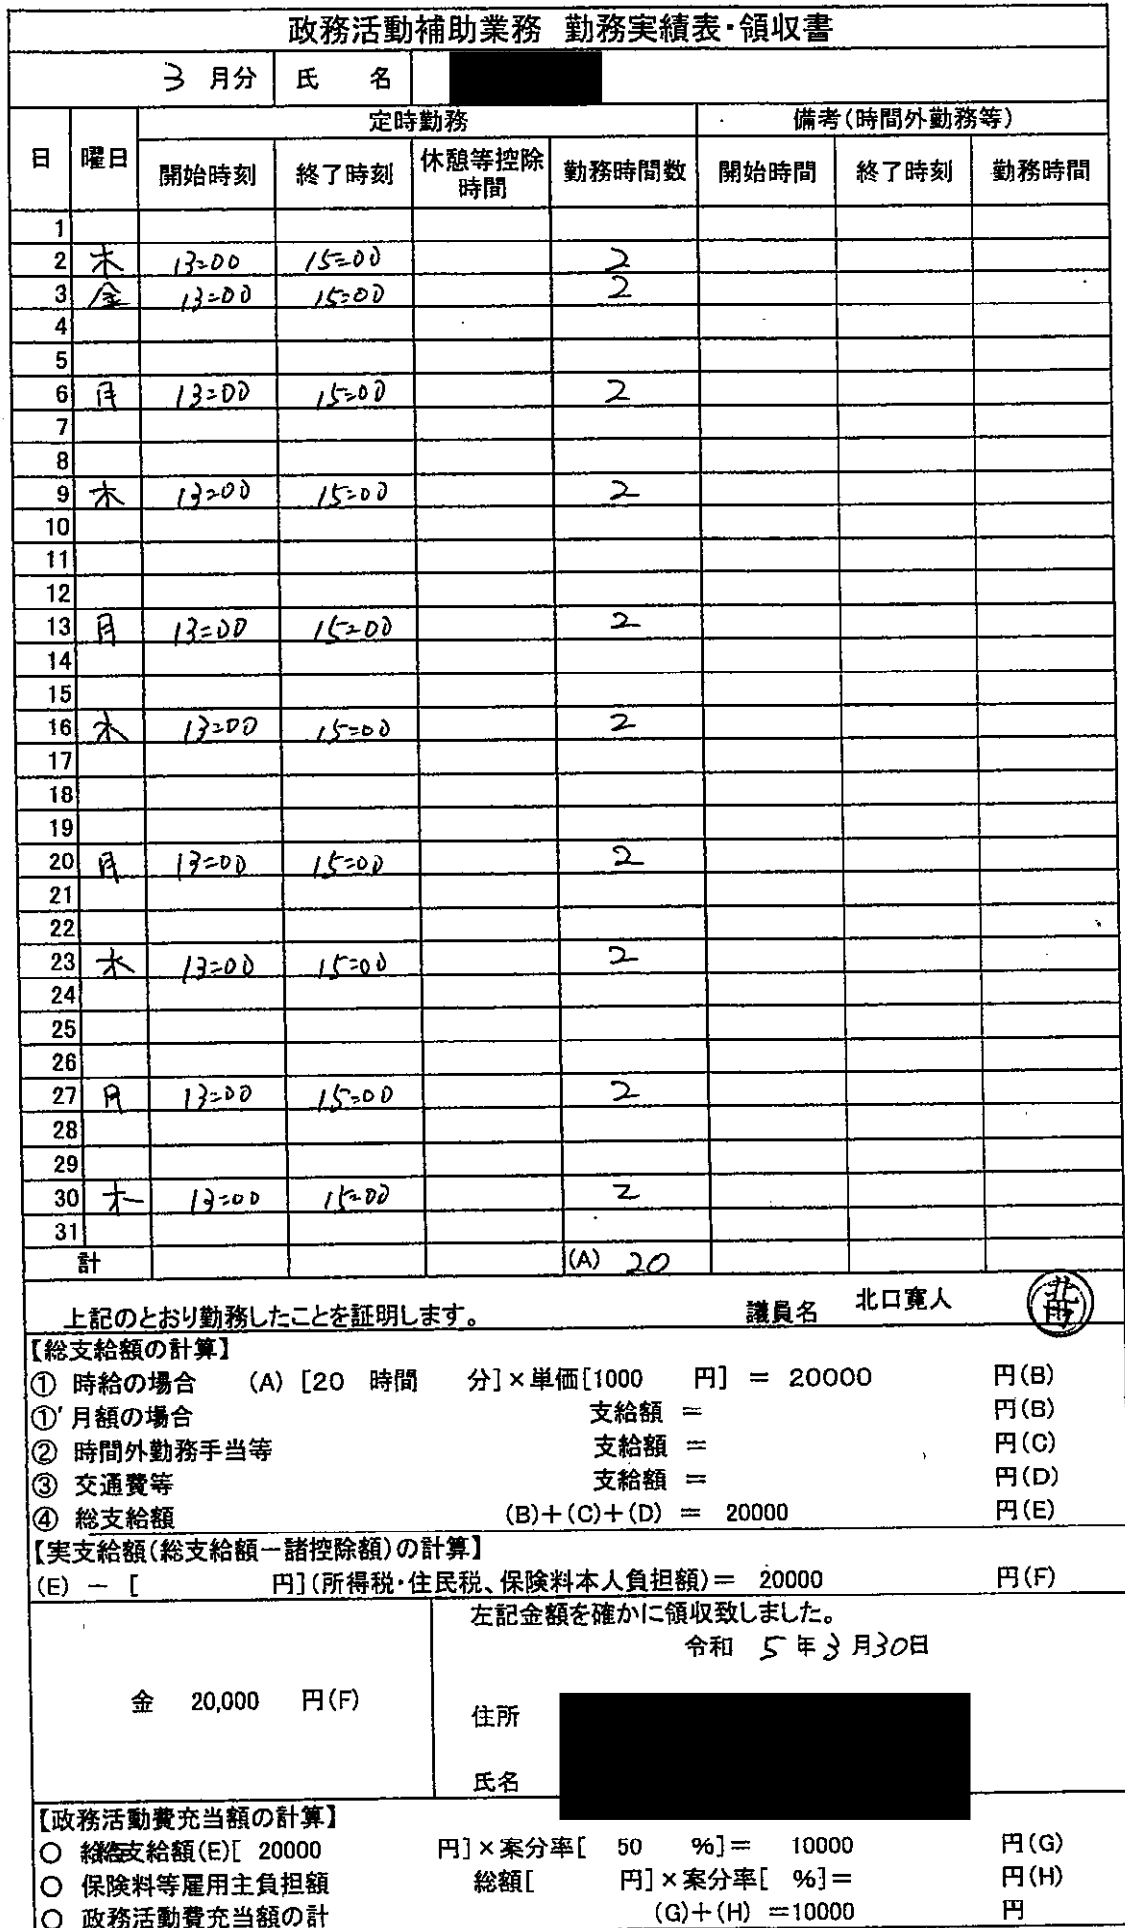 政務活動補助業務 勤務実績表・領収書
3 月分 氏 名
日 曜日 定時勤務 備考(時間外勤務等)
開始時刻 終了時刻 休憩等控除時間 勤務時間数 開始時間 終了時刻 勤務時間
1
2 木 13:00 15:00 2
3 金 13:00 15:00 2
4
5
6 月 13:00 15:00 2
7
8
9 木 13:00 15:00 2
10
11
12
13 月 13:00 15:00 2
14
15
16 木 13:00 15:00 2
17
18
19
20 月 13:00 15:00 2
21
22
23 木 13:00 15:00 2
24
25
26
27 月 13:00 15:00 2
28
29
30 木 13:00 15:00 2
31
計 (A) 20
上記のとおり勤務したことを証明します。 議員名 北口寛人
【総支給額の計算】
① 時給の場合 (A) [20 時間 分]×単価[1000 円] = 20000 円(B)
①' 月額の場合 支給額 = 円(B)
② 時間外勤務手当等 支給額 = 円(C)
③ 交通費等 支給額 = 円(D)
④ 総支給額 (B)+(C)+(D) = 20000 円(E)
【実支給額(総支給額-諸控除額)の計算】
(E) - [ 円](所得税・住民税、保険料本人負担額)= 20000 円(F)
左記金額を確かに領収致しました。
令和 5 年 3 月 30 日
金 20,000 円(F)
住所
氏名
【政務活動費充当額の計算】
○ 支給額(E)[ 20000 円]×案分率[ 50 %]= 10000 円(G)
○ 保険料等雇用主負担額 総額[ 円]×案分率[ %]= 円(H)
○ 政務活動費充当額の計 (G)+(H) =10000 円